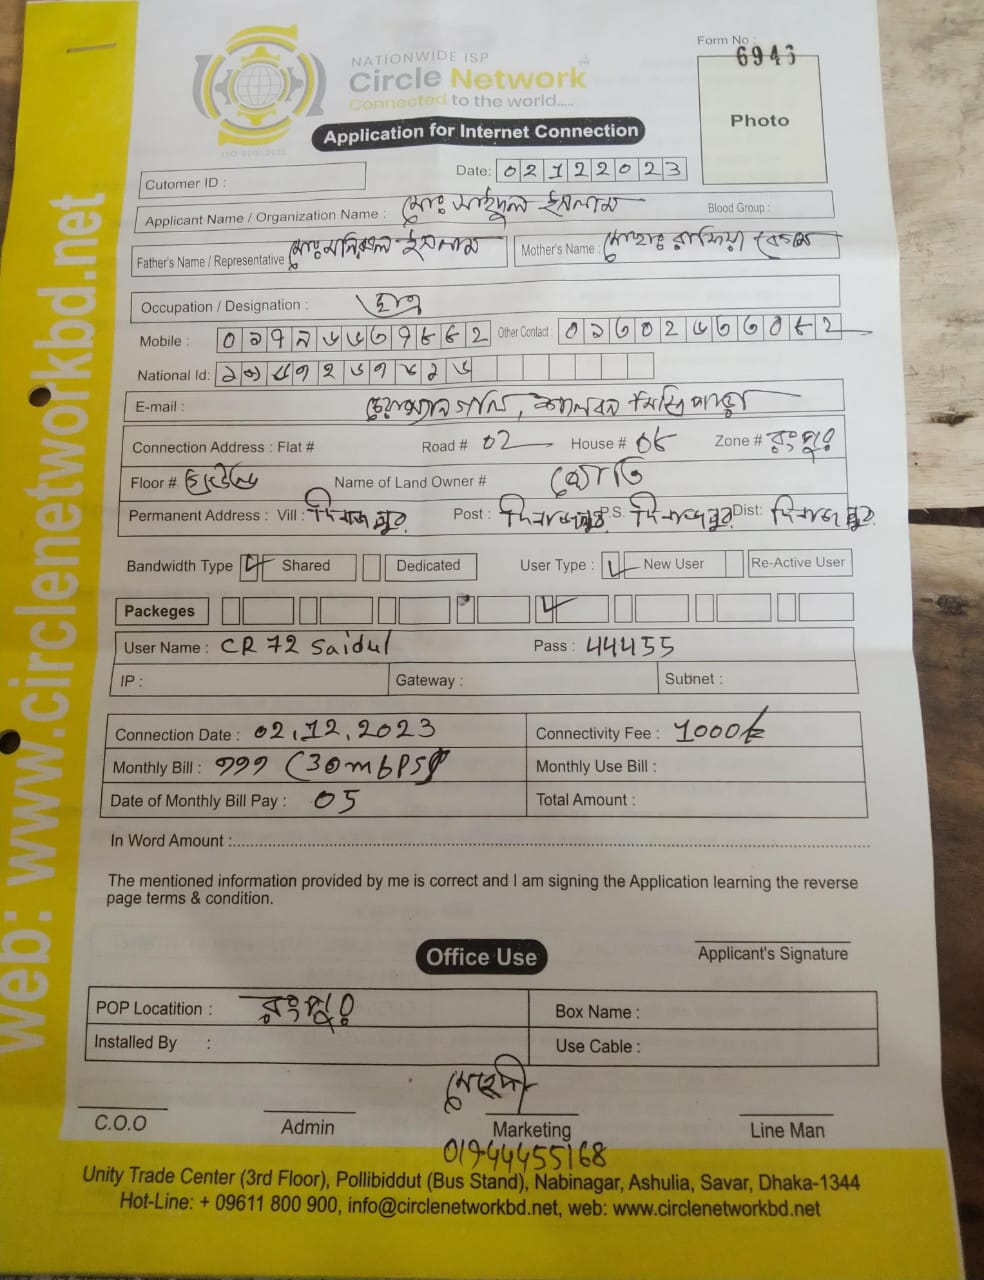 NATIONWIDE ISP
Circle Network
Connected to the world.....
ISO 9001:2015
Form No :
6943
Photo
Application for Internet Connection
Cutomer ID :
Date: 02122023
Applicant Name / Organization Name : মোঃ সাইদুল ইসলাম
Blood Group :
Father's Name / Representative মোঃ মনিরুল ইসলাম
Mother's Name : মোছাঃ রাফিয়া বেগম
Occupation / Designation : ছাত্র
Mobile :
Other Contact :
National Id:
E-mail :
Connection Address : Flat # Road # 02 House # 0৮ Zone # রংপুর
Floor # Name of Land Owner #
Permanent Address : Vill : দিনাজপুর Post : দিনাজপুর P.S. দিনাজপুর Dist: দিনাজপুর
Bandwidth Type Shared Dedicated User Type : New User Re-Active User
Packeges
User Name : CR 72 Saidul Pass : 44455
IP : Gateway : Subnet :
Connection Date : 02.12.2023 Connectivity Fee :
Monthly Bill : 999 (30mbps) Monthly Use Bill :
Date of Monthly Bill Pay : 05 Total Amount :
In Word Amount :
The mentioned information provided by me is correct and I am signing the Application learning the reverse
page terms & condition.
Applicant's Signature
Office Use
POP Locatition : রংপুর Box Name :
Installed By : Use Cable :
মেহেদী
C.O.O Admin Marketing Line Man
01944455168
Unity Trade Center (3rd Floor), Pollibiddut (Bus Stand), Nabinagar, Ashulia, Savar, Dhaka-1344
Hot-Line: + 09611 800 900, info@circlenetworkbd.net, web: www.circlenetworkbd.net
web: www.circlenetworkbd.net